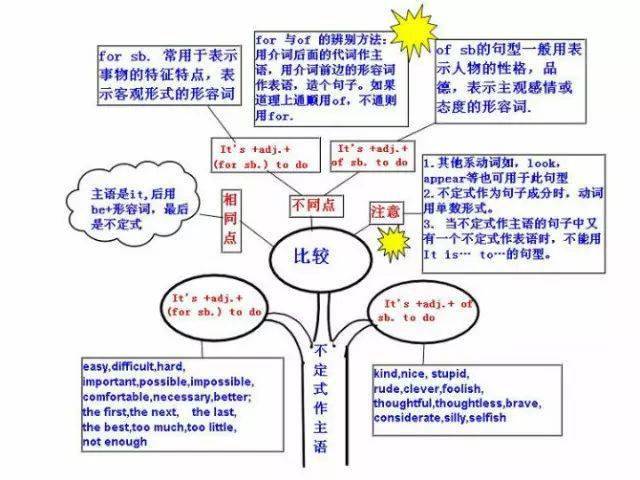 for sb. 常用于表示
事物的特征特点，表
示客观形式的形容词
for 与of 的辨别方法：
用介词后面的代词作主
语，用介词首边的形容词
作表语，造个句子。如果
道理上通顺用of，不通则
用for.
of sb的句型一般用表
示人物的性格，品
德，表示主观感情或
态度的形容词.
It's +adj.+
(for sb.) to do
It's +adj.+
of sb. to do
主语是it,后用
be+形容词，最后
是不定式
相同点
不同点
注意
1.其他系动词如，look，
appear等也可用于此句型
2.不定式作为句子成分时，动词
用单数形式。
3. 当不定式作主语的句子中又
有一个不定式作表语时，不能用
It is… to…的句型。
比较
It's +adj.+
(for sb.) to do
It's +adj.+ of
sb. to do
不定式作主语
easy,difficult,hard,
important,possible,impossible,
comfortable,necessary,better;
the first,the next, the last,
the best,too much,too little,
not enough
kind,nice, stupid,
rude,clever,foolish,
thoughtful,thoughtless,brave,
considerate,silly,selfish